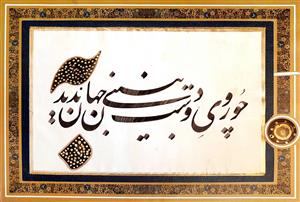 چو روی دوست نبینی جهان ندیدن به